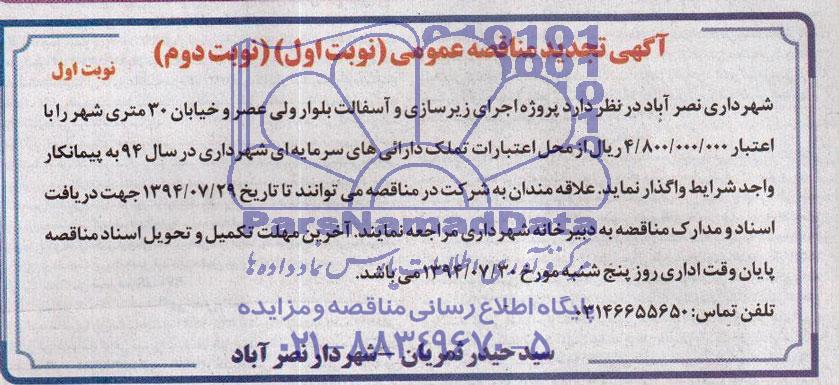 آگهی تجدید مناقصه عمومی (نوبت اول) (نوبت دوم)
نوبت اول
شهرداری نصر آباد در نظر دارد پروژه اجرای زیرسازی و آسفالت بلوار ولی عصر و خیابان ۳۰ متری شهر را با
اعتبار ۴/۸۰۰/۰۰۰/۰۰۰ ریال از محل اعتبارات تملک دارائی های سرمایه ای شهرداری در سال ۹۴ به پیمانکار
واجد شرایط واگذار نماید. علاقه مندان به شرکت در مناقصه می توانند تا تاریخ ۱۳۹۴/۰۷/۲۹ جهت دریافت
اسناد و مدارک مناقصه به دبیرخانه شهرداری مراجعه نمایند. آخرین مهلت تکمیل و تحویل اسناد مناقصه
پایان وقت اداری روز پنج شنبه مورخ ۱۳۹۴/۰۷/۳۰ می باشد.
تلفن تماس: ۰۳۱۴۶۶۵۵۶۵۰
سید حیدر نمریان - شهردار نصر آباد
ParsNamadData
مرکز فرآوری اطلاعات پارس نماد داده ها
پایگاه اطلاع رسانی مناقصه و مزایده
۰۲۱-۸۸۳۴۹۶۷۰-۵